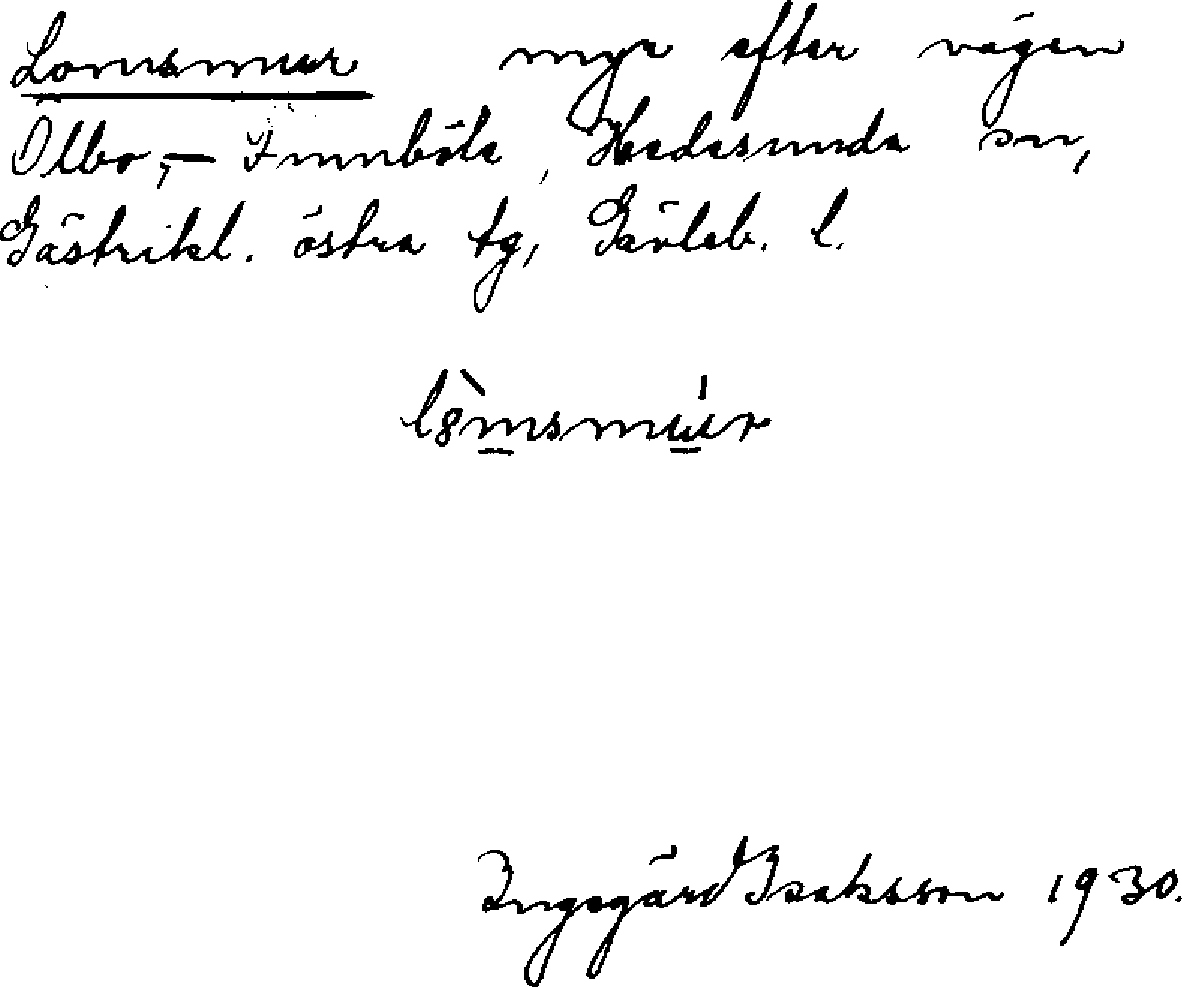 Lomsmur myr efter vägen
Ölbo,- Finnböle, Hedesunda sn,
Gästrikl. östra tg, Gävleb. l.
Ingegärd Isaksson 1930.